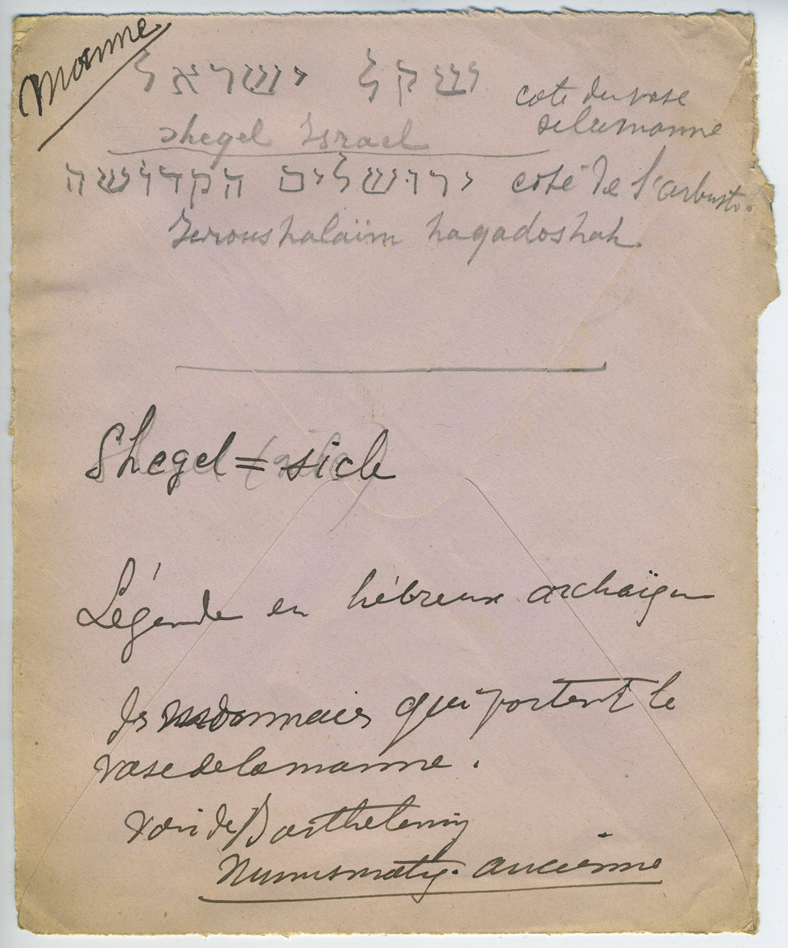 Manne
שקל ישראל coté du vase
de la manne
shegel Israel
ירושלים הקדושה coté de l'arbuste.
Jeroushalaïm hagadoshah
Shegel = sicle
Légende en hébreux archaïque
des monnaies qui portent le
vase de la manne.
voir de Barthelemy
Numismatiq. ancienne